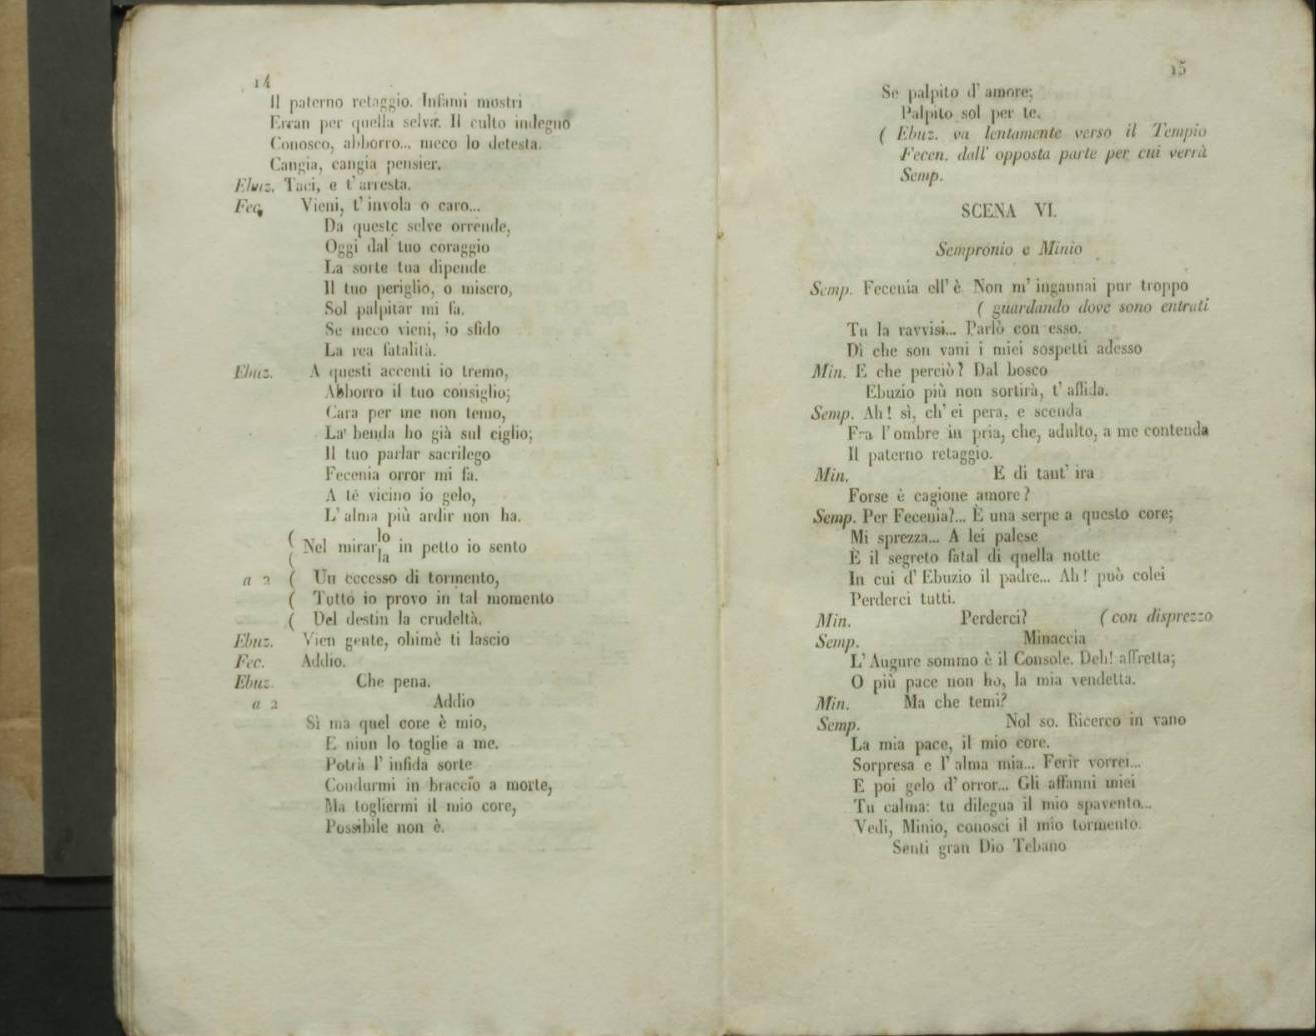 14
Il paterno retaggio. Infami mostri
Erran per quella selva. Il culto indegno
Conosco, abborro... meco lo detesta.
Cangia, cangia pensier.
Ebuz. Taci, e t' arresta.
Fec. Vieni, t' invola o caro...
Da queste selve orrende,
Oggi dal tuo coraggio
La sorte tua dipende
Il tuo periglio, o misero,
Sol palpitar mi fa.
Se meco vieni, io sfido
La rea fatalità.
Ebuz. A questi accenti io tremo,
Abborro il tuo consiglio;
Cara per me non temo,
La benda ho già sul ciglio;
Il tuo parlar sacrilego
Fecenia orror mi fa.
A té vicino io gelo,
L' alma più ardir non ha.
( Nel mirar lo/la in petto io sento
a 2 ( Un eccesso di tormento,
( Tutto io provo in tal momento
( Del destin la crudeltà.
Ebuz. Vien gente, ohimè ti lascio
Fec. Addio.
Ebuz. Che pena.
a 2 Addio
Sì ma quel core è mio,
E niun lo toglie a me.
Potrà l' infida sorte
Condurmi in braccio a morte,
Ma togliermi il mio core,
Possibile non è.
15
Se palpito d' amore;
Palpito sol per te.
( Ebuz. va lentamente verso il Tempio
Fecen. dall' opposta parte per cui verrà
Semp.
SCENA VI.
Sempronio e Minio
Semp. Fecenia ell' è Non m' ingannai pur troppo
( guardando dove sono entrati
Tu la ravvisi... Parlò con esso.
Dì che son vani i miei sospetti adesso
Min. E che perciò? Dal bosco
Ebuzio più non sortirà, t' affida.
Semp. Ah! sì, ch' ei pera, e scenda
Fra l' ombre in pria, che, adulto, a me contenda
Il paterno retaggio.
Min. E di tant' ira
Forse è cagione amore?
Semp. Per Fecenia?... È una serpe a questo core;
Mi sprezza... A lei palese
È il segreto fatal di quella notte
In cui d' Ebuzio il padre... Ah! può colei
Perderci tutti.
Min. Perderci? ( con disprezzo
Semp. Minaccia
L' Augure sommo è il Console. Deh! affretta;
O più pace non ho, la mia vendetta.
Min. Ma che temi?
Semp. Nol so. Ricerco in vano
La mia pace, il mio core.
Sorpresa e l' alma mia... Ferir vorrei...
E poi gelo d' orror... Gli affanni miei
Tu calma: tu dilegua il mio spavento...
Vedi, Minio, conosci il mio tormento.
Senti gran Dio Tebano